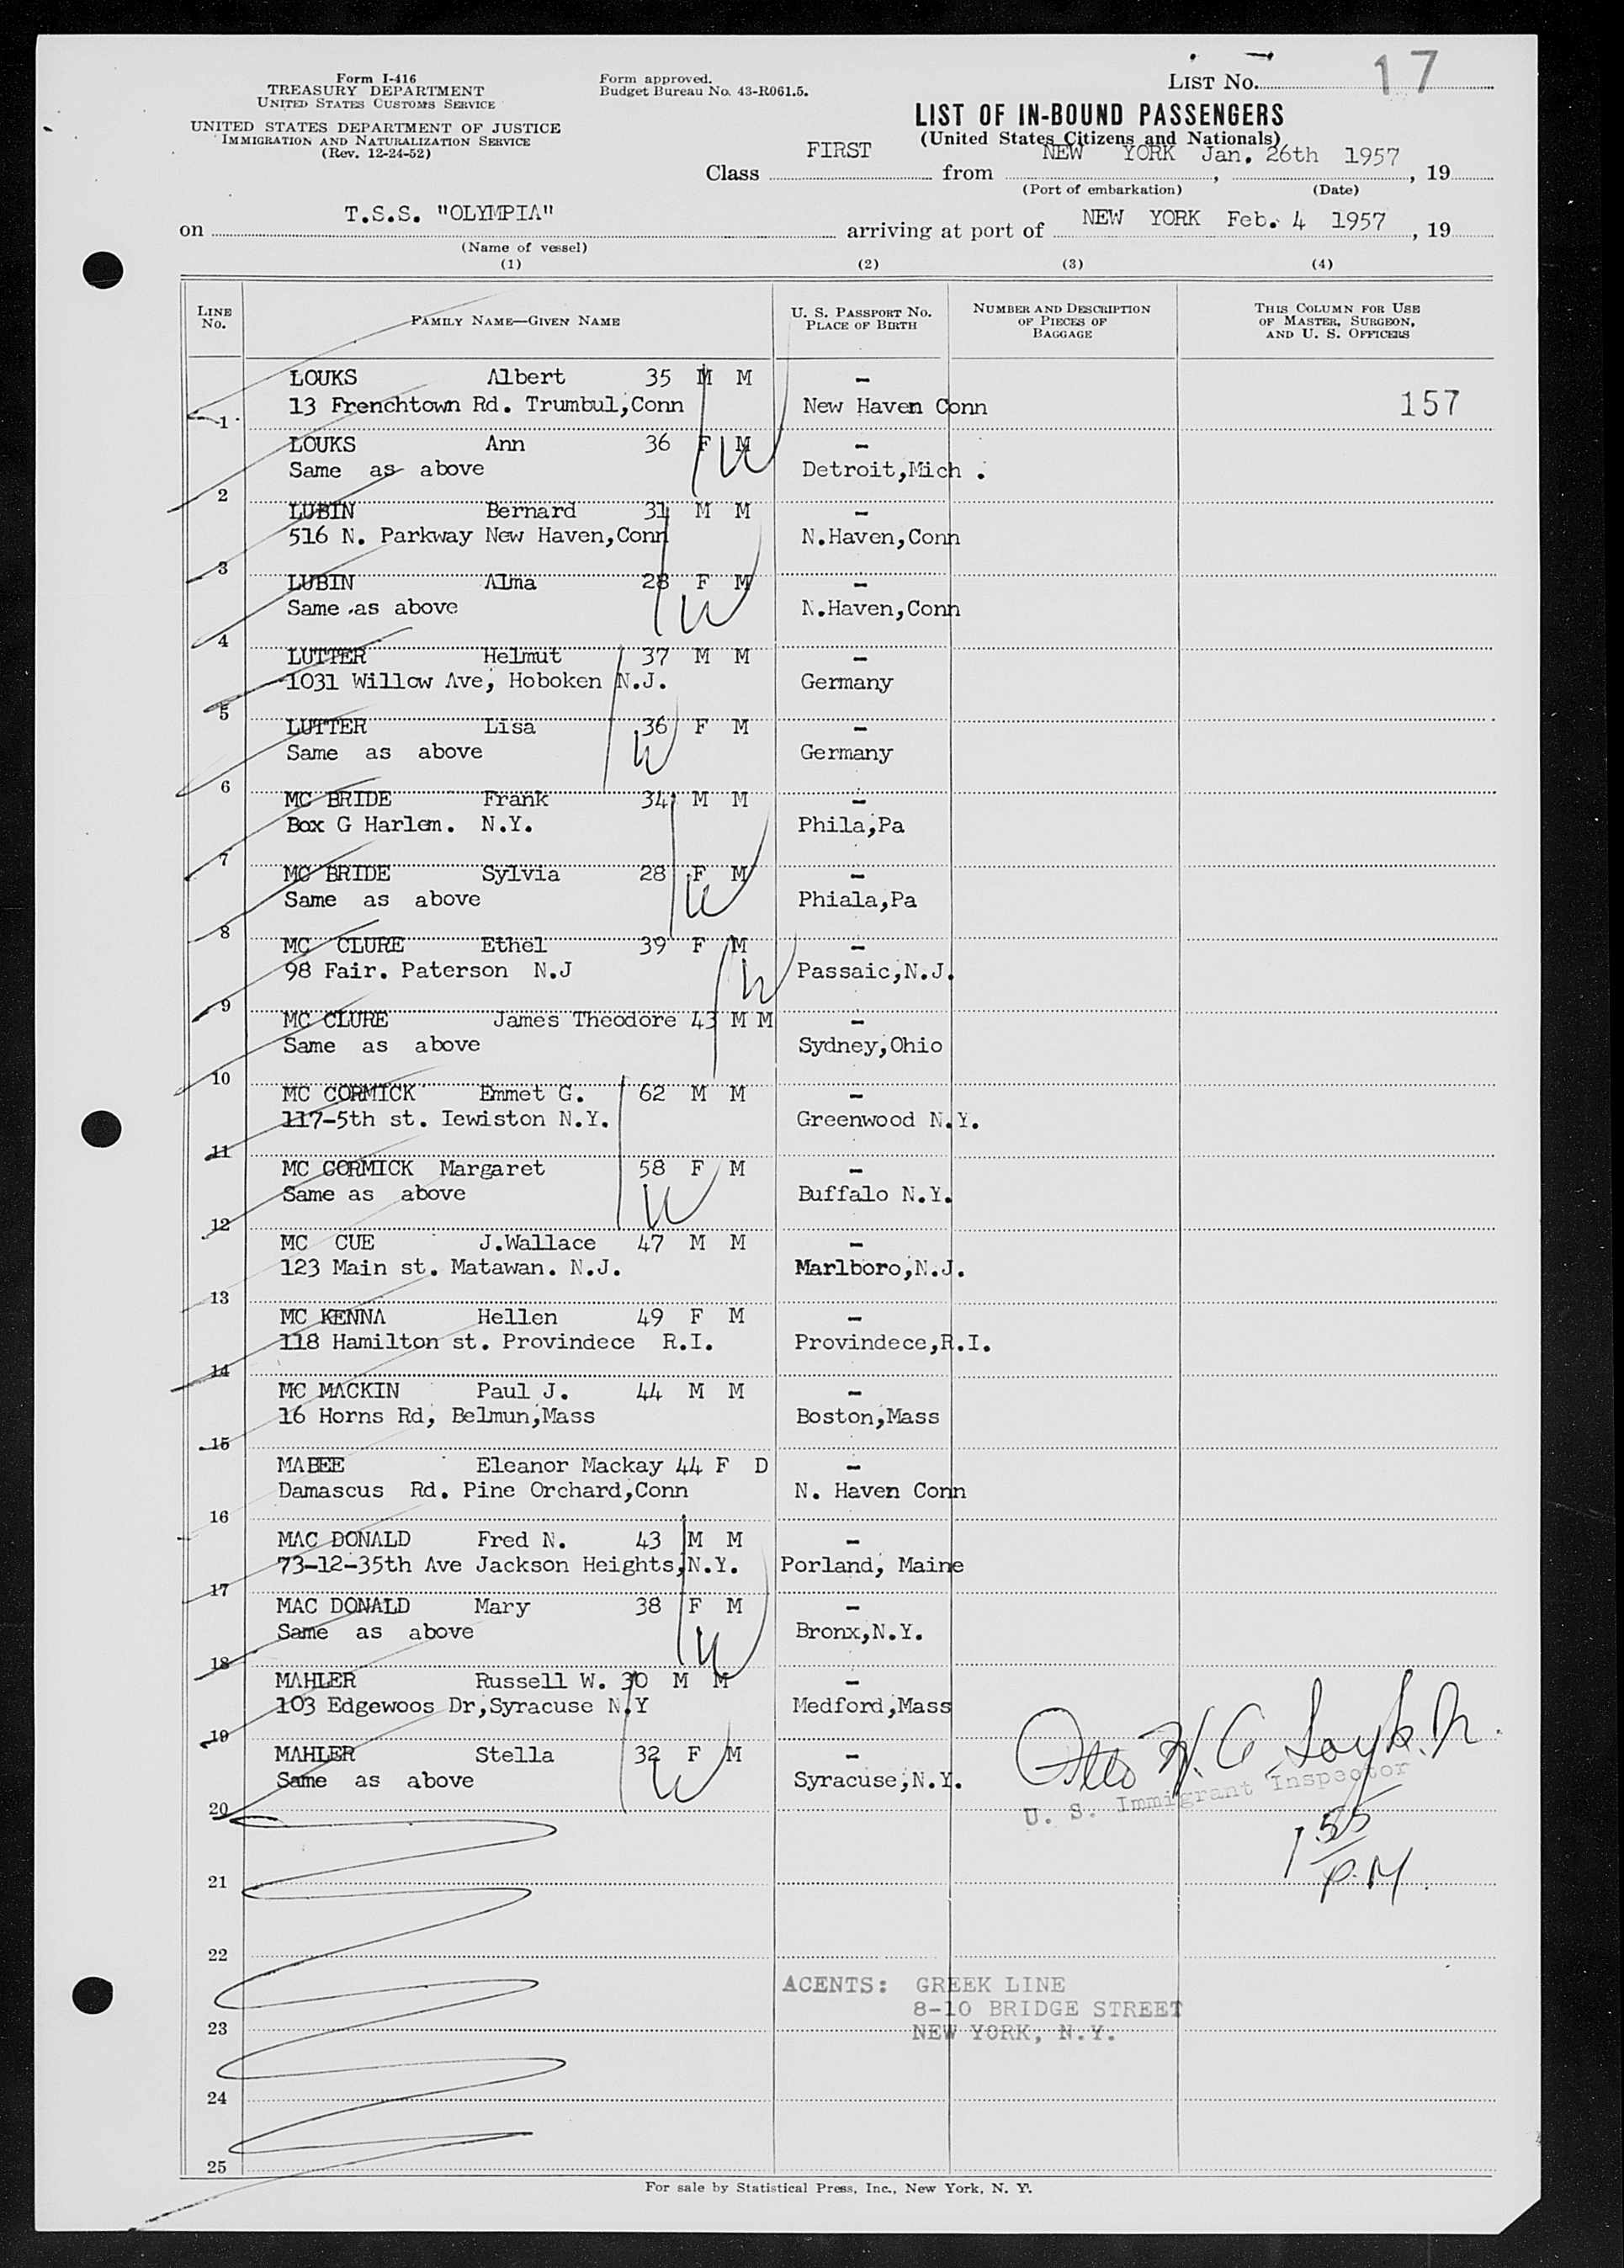 Form I-416
TREASURY DEPARTMENT
UNITED STATES CUSTOMS SERVICE
UNITED STATES DEPARTMENT OF JUSTICE
IMMIGRATION AND NATURALIZATION SERVICE
(Rev. 12-24-52)
Form approved.
Budget Bureau No. 43-R061.5.
LIST No. 17
LIST OF IN-BOUND PASSENGERS
(United States Citizens and Nationals)
Class FIRST from NEW YORK Jan. 26th 1957, 19
(Port of embarkation) (Date)
on T.S.S. "OLYMPIA" arriving at port of NEW YORK Feb. 4 1957, 19
(Name of vessel)
(1) (2) (3) (4)
LINE No. FAMILY NAME—GIVEN NAME U. S. PASSPORT No. PLACE OF BIRTH NUMBER AND DESCRIPTION OF PIECES OF BAGGAGE THIS COLUMN FOR USE OF MASTER, SURGEON, AND U. S. OFFICERS
LOUKS Albert 35 M M -
1 13 Frenchtown Rd. Trumbul,Conn New Haven Conn 157
LOUKS Ann 36 F M -
2 Same as above Detroit,Mich .
LUBIN Bernard 31 M M -
3 516 N. Parkway New Haven,Conn N.Haven,Conn
LUBIN Alma 28 F M -
4 Same as above N.Haven,Conn
LUTTER Helmut 37 M M -
5 1031 Willow Ave, Hoboken N.J. Germany
LUTTER Lisa 36 F M -
6 Same as above Germany
MC BRIDE Frank 34 M M -
7 Box G Harlem. N.Y. Phila,Pa
MC BRIDE Sylvia 28 F M -
8 Same as above Phiala,Pa
MC CLURE Ethel 39 F M -
9 98 Fair. Paterson N.J Passaic,N.J.
MC CLURE James Theodore 43 M M -
10 Same as above Sydney,Ohio
MC CORMICK Emmet G. 62 M M -
11 117-5th st. Iewiston N.Y. Greenwood N.Y.
MC CORMICK Margaret 58 F M -
12 Same as above Buffalo N.Y.
MC CUE J.Wallace 47 M M -
13 123 Main st. Matawan. N.J. Marlboro,N.J.
MC KENNA Hellen 49 F M -
14 118 Hamilton st. Provindece R.I. Provindece,R.I.
MC MACKIN Paul J. 44 M M -
15 16 Horns Rd, Belmun,Mass Boston,Mass
MABEE Eleanor Mackay 44 F D -
16 Damascus Rd. Pine Orchard,Conn N. Haven Conn
MAC DONALD Fred N. 43 M M -
17 73-12-35th Ave Jackson Heights,N.Y. Porland, Maine
MAC DONALD Mary 38 F M -
18 Same as above Bronx,N.Y.
MAHLER Russell W. 30 M M -
19 103 Edgewoos Dr,Syracuse N.Y Medford,Mass
MAHLER Stella 32 F M -
20 Same as above Syracuse,N.Y.
U. S. Immigrant Inspector
1 55 P.M.
21
22
ACENTS: GREEK LINE
8-10 BRIDGE STREET
23 NEW YORK, N.Y.
24
25
For sale by Statistical Press, Inc., New York, N. Y.